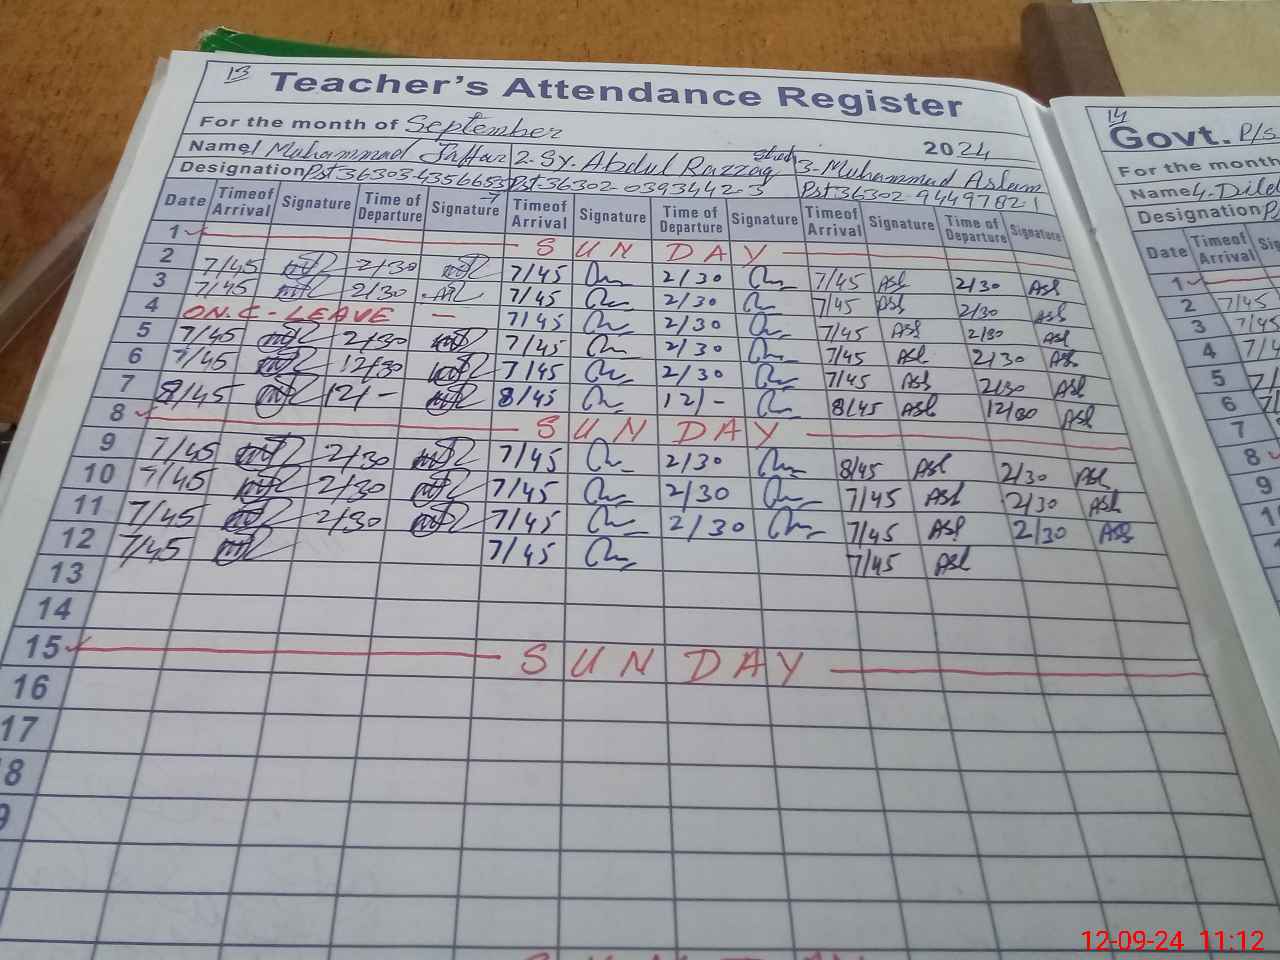 13
Teacher's Attendance Register
For the month of September 2024
Name 1 Muhammad Jaffar 2. Sy. Abdul Razzaq shah 3. Muhammad Aslam
Designation Pst 36303-4356653-7 Pst. 36302-0393442-3 Pst 36302-9449782-1
Date Timeof Arrival Signature Time of Departure Signature Timeof Arrival Signature Time of Departure Signature Timeof Arrival Signature Time of Departure Signature
1 SUNDAY
2 7/45 2/30 7/45 2/30 7/45 Asl 2/30 Asl
3 7/45 2/30 7/45 2/30 7/45 Asl 2/30 Asl
4 ON. C - LEAVE — 7/45 2/30 7/45 Asl 2/30 Asl
5 7/45 2/30 7/45 2/30 7/45 Asl 2/30 Asl
6 7/45 12/30 7/45 2/30 7/45 Asl 2/30 Asl
7 8/45 12/- 8/45 12/- 8/45 Asl 12/00 Asl
8 SUNDAY
9 7/45 2/30 7/45 2/30 8/45 Asl 2/30 Asl
10 7/45 2/30 7/45 2/30 7/45 Asl 2/30 Asl
11 7/45 2/30 7/45 2/30 7/45 Asl 2/30 Asl
12 7/45 7/45 7/45 Asl
13
14
15 SUNDAY
16
17
8
9
14
Govt. P/s
For the month
Name 4. Dild
Designation
Date Timeof Arrival
1
2 7/45
3 7/45
4
5
6
7
8
9
12-09-24 11:12